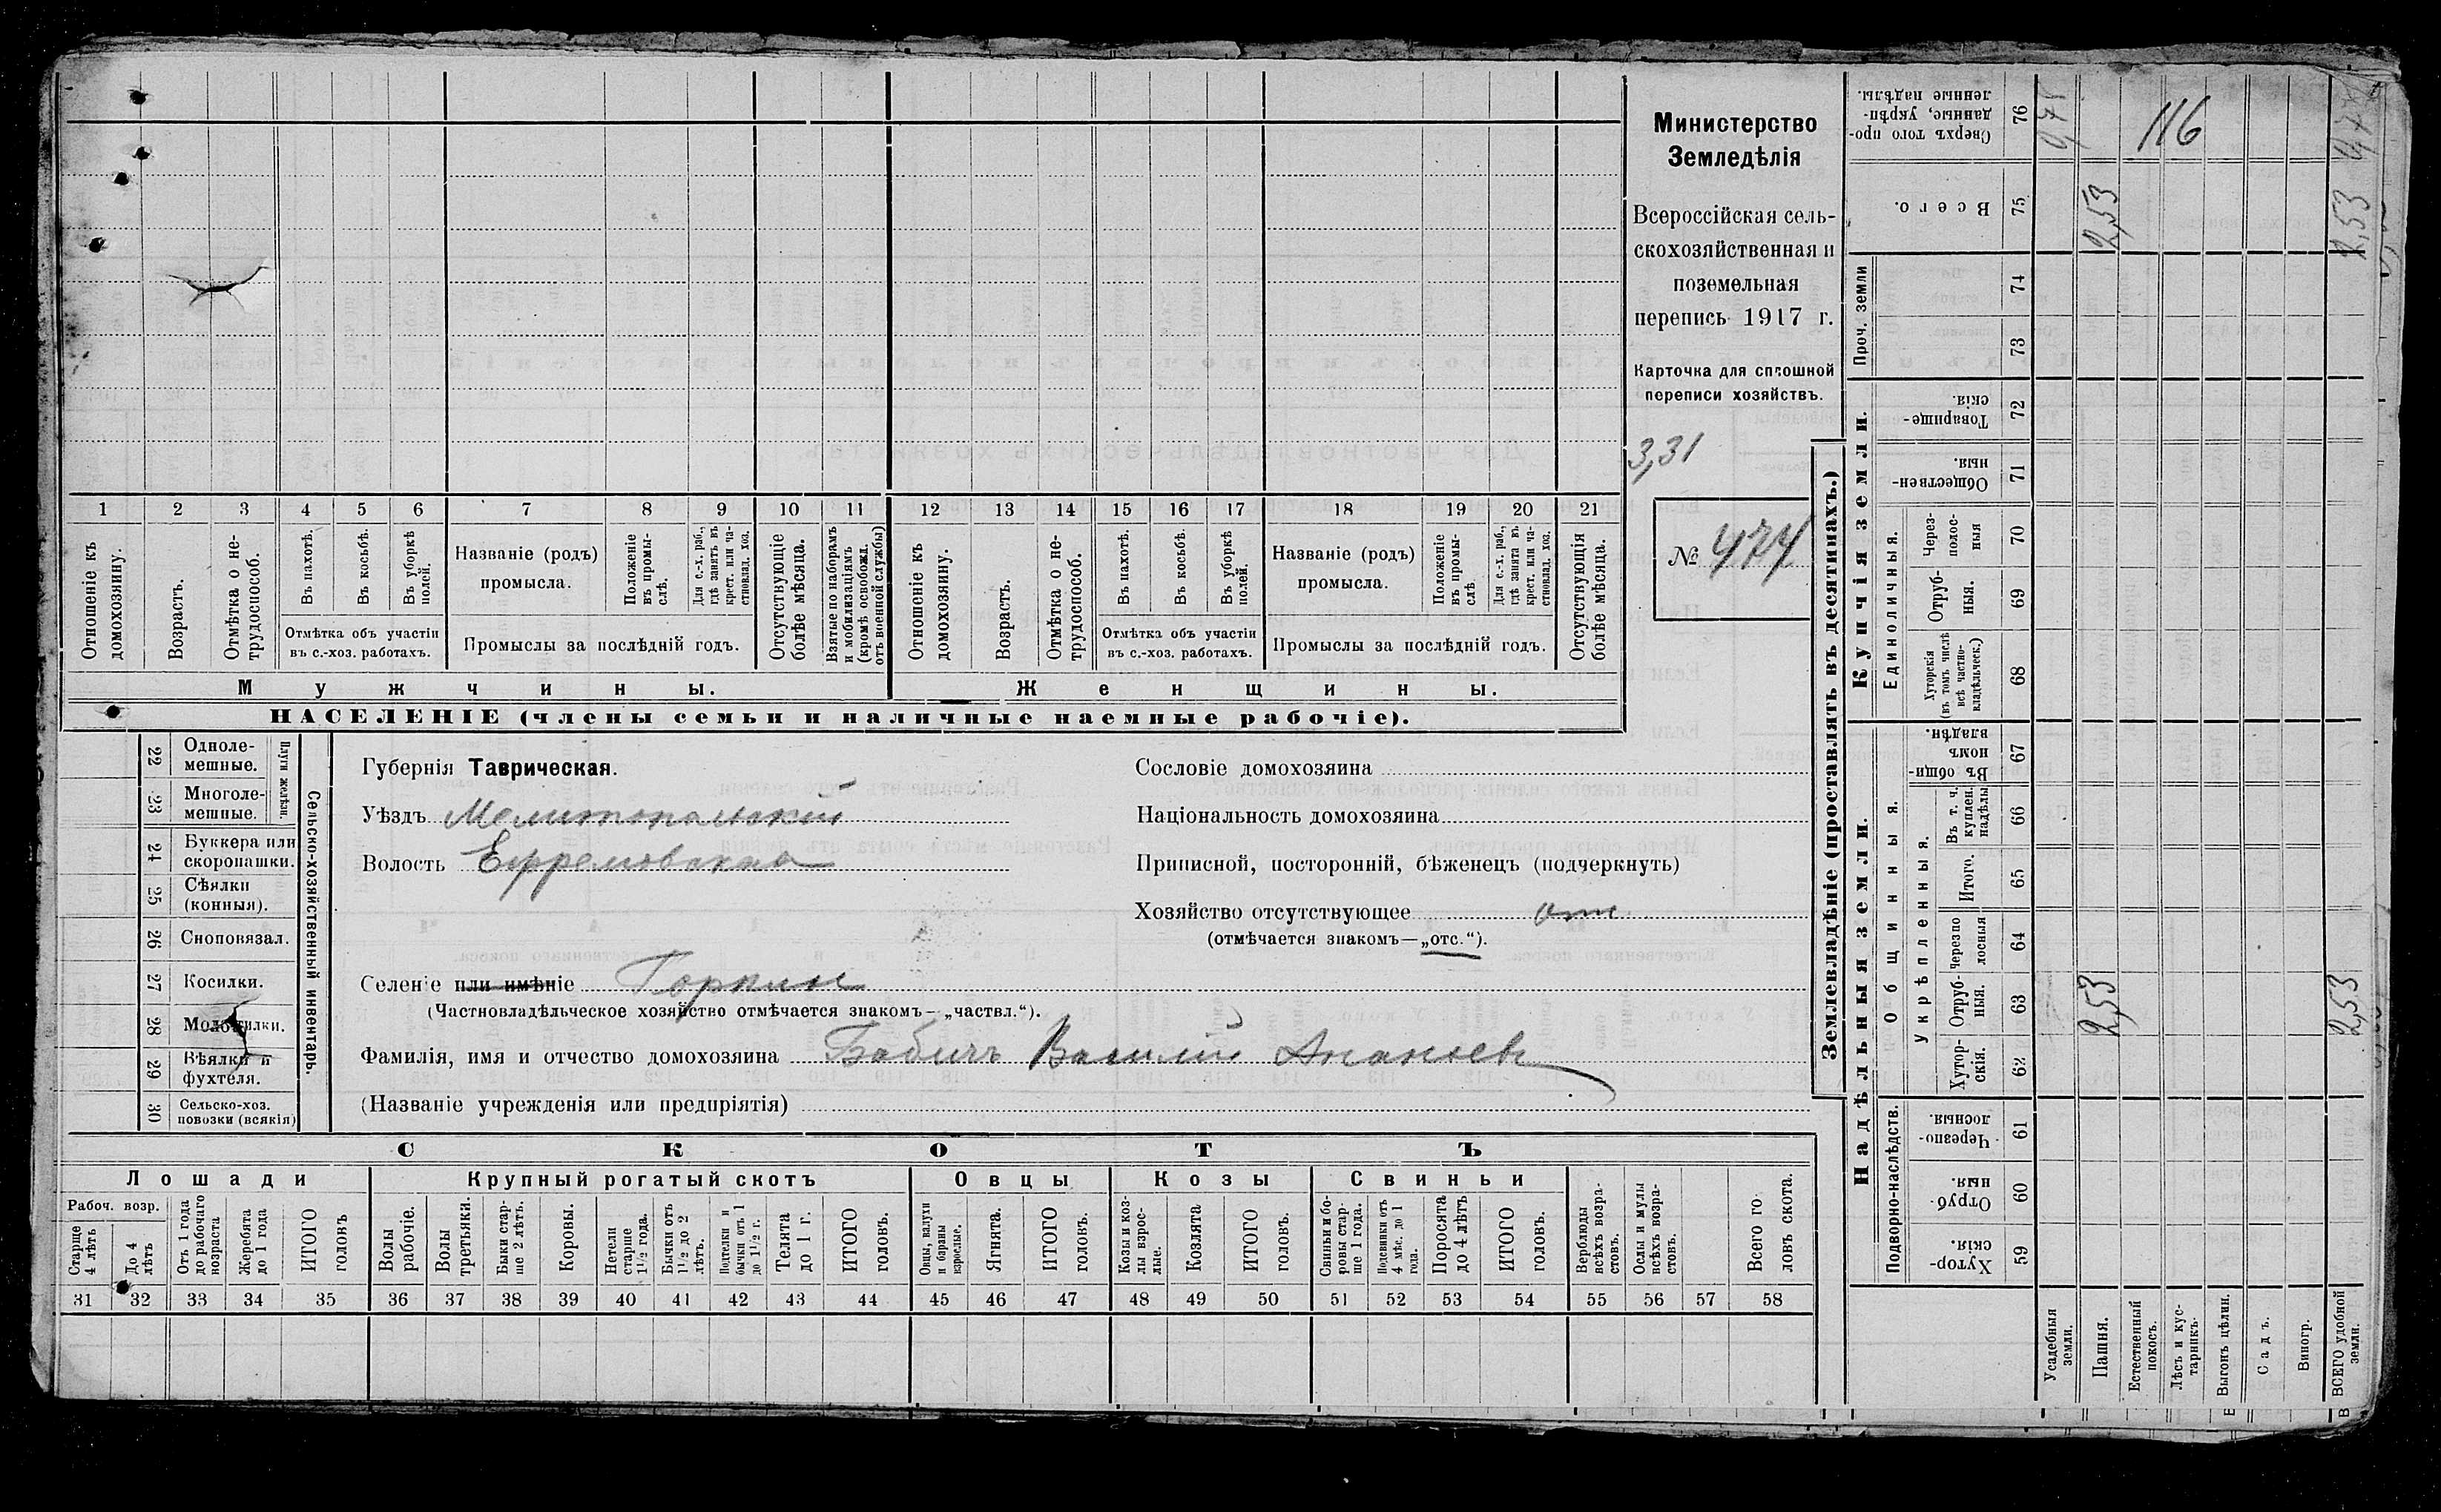 Министерство
Земледѣлія
Всероссійская сель-
скохозяйственная и
поземельная
перепись 1917 г.
Карточка для сплошной
переписи хозяйствъ.
3,31
№ 474
1 2 3 4 5 6 7 8 9 10 11 12 13 14 15 16 17 18 19 20 21
Отношеніе къ домохозяину.
Возрастъ.
Отмѣтка о не-трудоспособ.
Въ пахотѣ.
Въ косьбѣ.
Въ уборкѣ полей.
Отмѣтка объ участіи
въ с.-хоз. работахъ.
Названіе (родъ)
промысла.
Положеніе въ промы-слѣ.
Для с.-х. раб., гдѣ занятъ въ крест. или ча-стновлад. хоз.
Промыслы за послѣдній годъ.
Отсутствующіе болѣе мѣсяца.
Взятые по наборамъ и мобилизаціямъ (кромѣ освобожд. отъ военной службы)
Отношеніе къ домохозяину.
Возрастъ.
Отмѣтка о не-трудоспособ.
Въ пахотѣ.
Въ косьбѣ.
Въ уборкѣ полей.
Отмѣтка объ участіи
въ с.-хоз. работахъ.
Названіе (родъ)
промысла.
Положеніе въ промы-слѣ
Для с.-х. раб., гдѣ занята въ крест. или ча-стновлад. хоз.
Промыслы за послѣдній годъ.
Отсутствующія болѣе мѣсяца.
Мужчины.
Женщины.
НАСЕЛЕНІЕ (члены семьи и наличные наемные рабочіе).
Сельско-хозяйственный инвентарь.
Плуги желѣзн.
22 Одноле-мешные.
23 Многоле-мешные.
24 Буккера или скоропашки.
25 Сѣялки (конныя).
26 Сноповязал.
27 Косилки.
28 Молотилки.
29 Вѣялки и фухтеля.
30 Сельско-хоз. повозки (всякія)
Губернія Таврическая.
Уѣздъ Мелитопольскій
Волость Ефремовская
Селеніе или имѣніе Горкин
(Частновладѣльческое хозяйство отмѣчается знакомъ—„частвл.“).
Фамилія, имя и отчество домохозяина Бабичъ Василій Ананьев
(Названіе учрежденія или предпріятія)
Сословіе домохозяина
Національность домохозяина
Приписной, посторонній, бѣженецъ (подчеркнуть)
Хозяйство отсутствующее отс
(отмѣчается знакомъ—„отс.“).
СКОТЪ
Лошади
Крупный рогатый скотъ
Овцы
Козы
Свиньи
Рабоч. возр.
Старше 4 лѣтъ
До 4 лѣтъ
Отъ 1 года до рабочаго возраста
Жеребята до 1 года
ИТОГО головъ
Волы рабочіе.
Волы третьяки.
Быки стар-ше 2 лѣтъ.
Коровы.
Нетели старше 1½ года.
Бычки отъ 1½ до 2 лѣтъ.
Подтелки и бычки отъ 1 до 1½ г.
Телята до 1 г.
ИТОГО головъ.
Овцы, валухи и бараны взрослые.
Ягнята.
ИТОГО головъ.
Козы и коз-лы взрос-лые.
Козлята
ИТОГО головъ.
Свиньи и бо-ровы стар-ше 1 года.
Подсвинки отъ 4 мѣс. до 1 года.
Поросята до 4 лѣтъ
ИТОГО головъ.
Верблюды всѣхъ возра-стовъ.
Ослы и мулы всѣхъ возра-стовъ.
Всего го ловъ скота.
31 32 33 34 35 36 37 38 39 40 41 42 43 44 45 46 47 48 49 50 51 52 53 54 55 56 57 58
Землевладѣніе (проставлять въ десятинахъ.)
Надѣльныя земли.
Купчія земли.
Проч. земли
Подворно-наслѣдств.
Общинныя.
Укрѣпленныя.
Единоличныя.
76 Сверхъ того про-данные, укрѣп-ленные надѣлы.
75 Всего.
74
73
72 Товарище-скія.
71 Обществен-ныя.
70 Через-полос-ныя
69 Отруб-ныя.
68 Хуторскія (въ томъ числѣ всѣ частно-владѣльческ.)
67 Въ общи-номъ владѣн.
66 Въ т. ч. куплен. надѣлы
65 Итого.
64 Черезпо лосныя
63 Отруб-ныя.
62 Хутор-скія.
61 Черезпо-лосныя.
60 Отруб ныя.
59 Хутор-скія.
Усадебныя земли.
Пашня.
Естественный покосъ.
Лѣсъ и кус-тарникъ.
Выгонъ цѣлин.
Садъ.
Виногр.
ВСЕГО удобной земли.
116
2,53
2,53
2,53
2,53